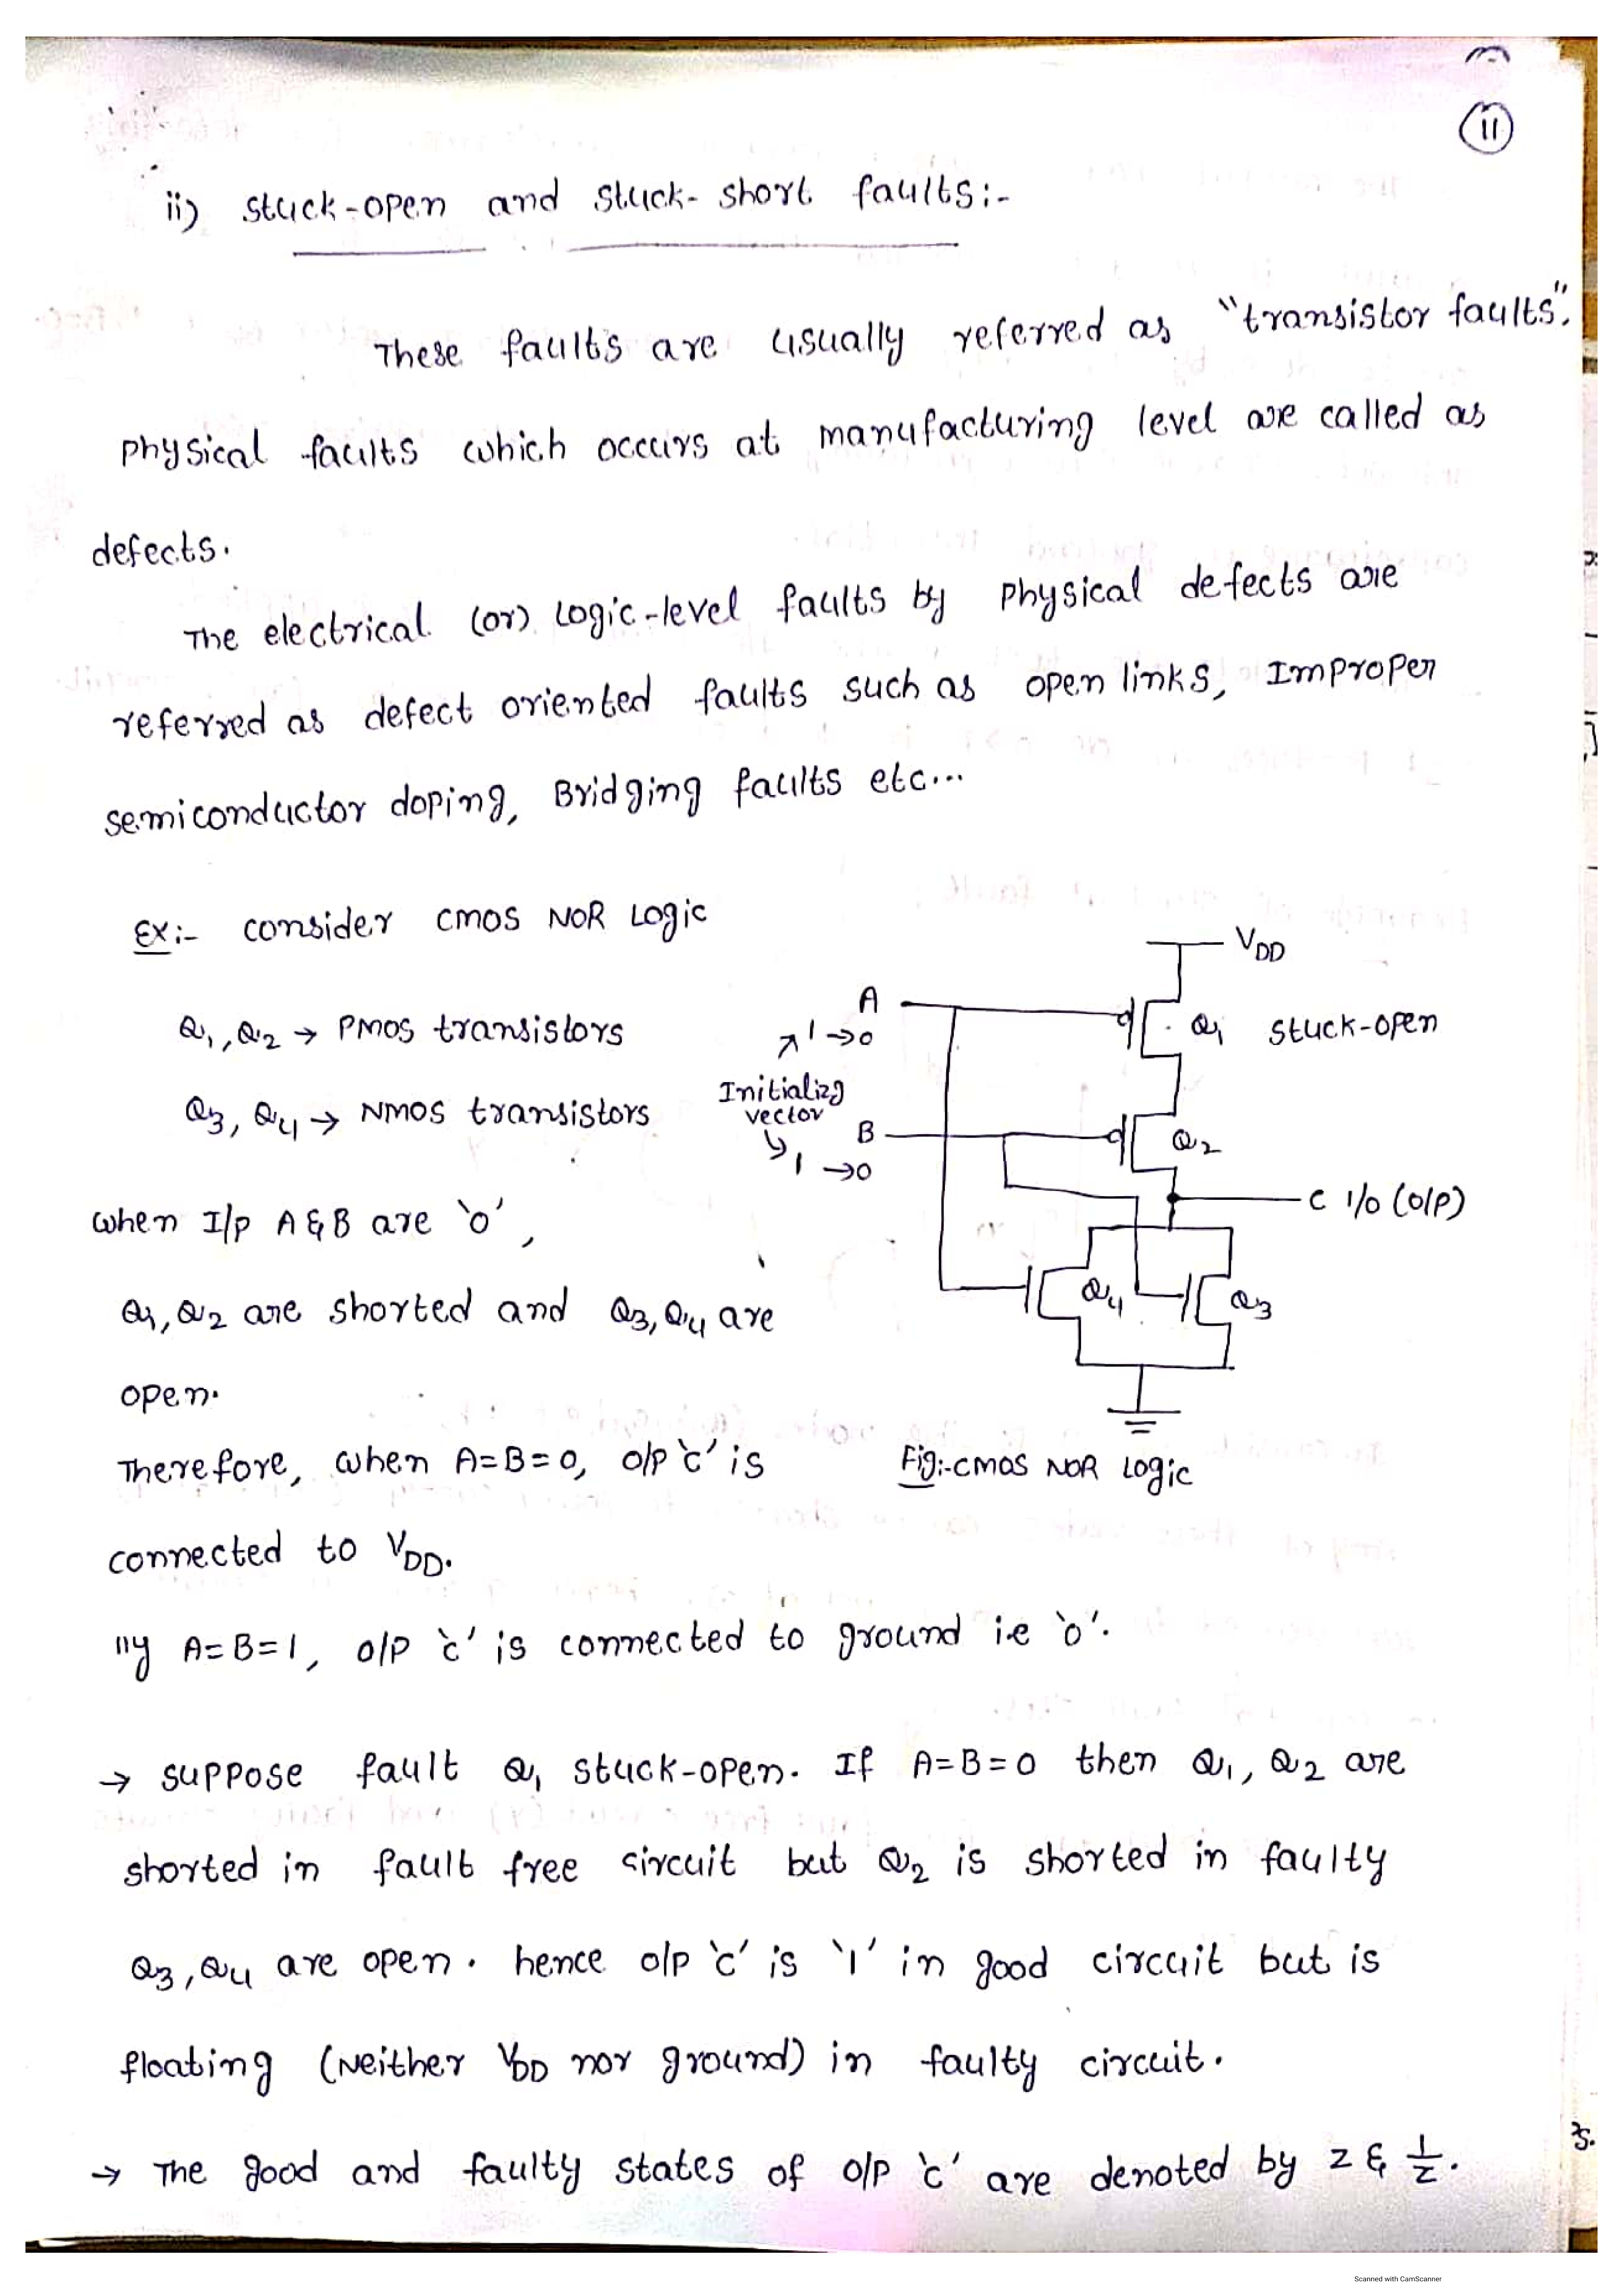 11
ii) stuck-open and stuck-short faults:-
These faults are usually referred as "transistor faults".
Physical faults which occurs at manufacturing level are called as
defects.
The electrical (or) logic-level faults by physical defects are
referred as defect oriented faults such as open links, Improper
semiconductor doping, Bridging faults etc...
Ex:- consider CMOS NOR Logic
Q1, Q2 → PMOS transistors
Q3, Q4 → NMOS transistors
when I/p A & B are '0',
Q1, Q2 are shorted and Q3, Q4 are
open.
Therefore, when A=B=0, o/p 'c' is
connected to VDD.
VDD
A
1→0
Q1 stuck-open
Initializg
vector
B
1→0
Q2
C 1/0 (O/P)
Q4
Q3
Fig:-CMOS NOR Logic
llly A=B=1, o/p 'c' is connected to ground i.e '0'.
→ suppose fault Q1 stuck-open. If A=B=0 then Q1, Q2 are
shorted in fault free circuit but Q2 is shorted in faulty
Q3, Q4 are open. hence o/p 'c' is '1' in good circuit but is
floating (Neither VDD nor ground) in faulty circuit.
→ The good and faulty states of o/p 'c' are denoted by z & 1/z.
Scanned with CamScanner